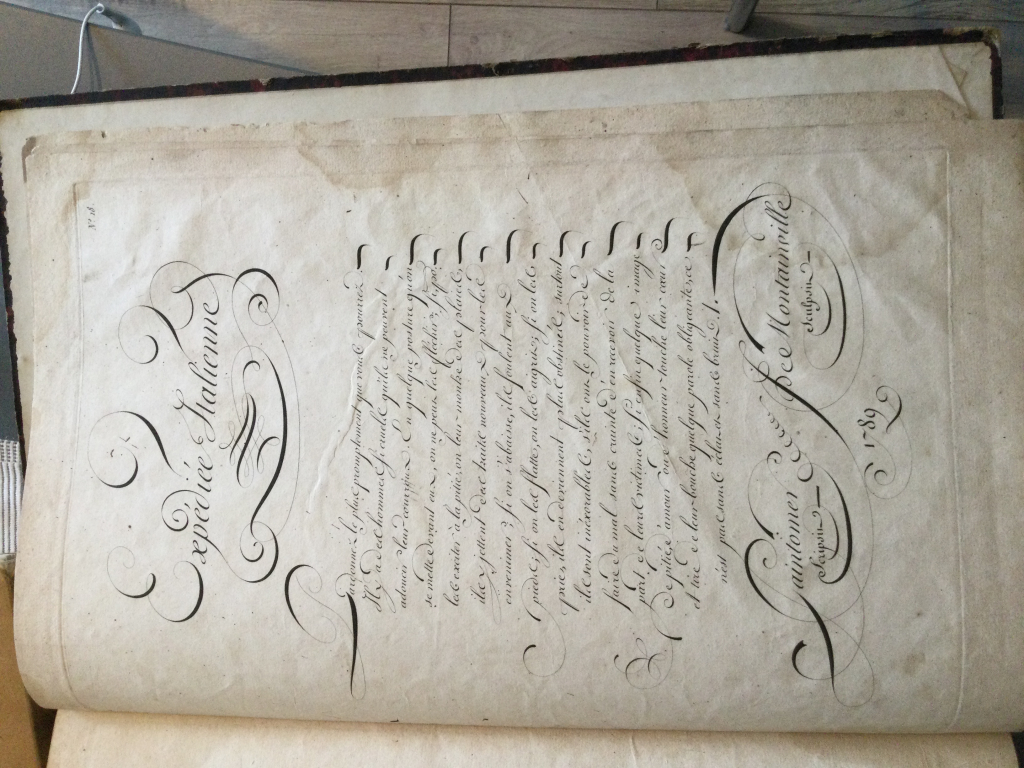 N.º 18.
Expédiée Italienne
Pardonnez le plus promptement que vous pourrez.
Il y a des hommes si cruels qu'ils ne peuvent
adoucir leur courroux. En quelque posture qu'on
se mette devant eux, on ne peut les fléchir, si pour
les exciter à la pitié, on leur montre des plaies,
ils y jettent des traits nouveaux pour les
envenimer; si on s'abaisse, ils foulent aux
pieds; si on les flatte, on les aigrit; si on les
prie, ils en deviennent plus obstinés, surtout
ils sont inéxorables, s'ils ont le pouvoir de
faire du mal sans crainte d'en recevoir de la
part de leurs victimes; si enfin quelque image
de pitié, d'amour ou d'honneur touche leur cœur
et tire de leur bouche quelque parole obligeante, ce
n'est pas sans éclair et sans bruit &.
Saintomer Scripsit
Dee Montainville Sculpsit
1789